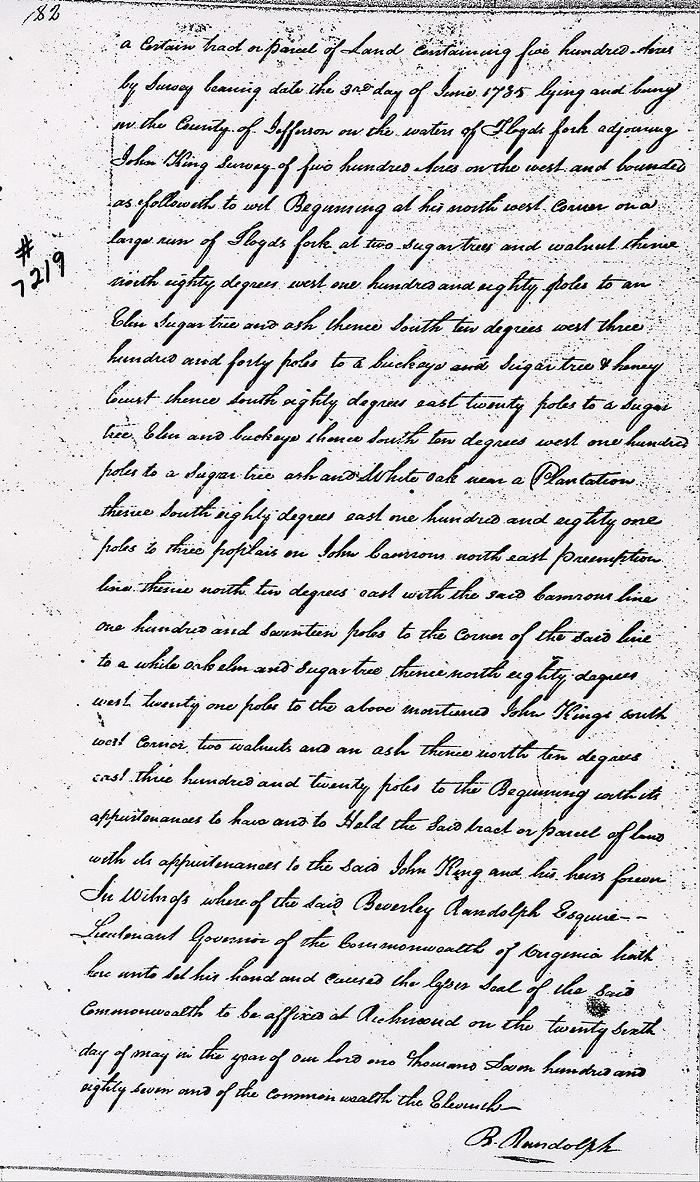 182
a Certain tract or parcel of Land containing five hundred Acres
by Survey bearing date the 3rd day of June 1785 lying and being
in the County of Jefferson on the waters of Floyds fork adjoining
John King Survey of five hundred Acres on the west and bounded
as followeth to wit Beginning at his north west Corner on a
large run of Floyds fork at two sugar trees and walnut thence
# 7219
north eighty degrees west one hundred and eighty poles to an
Elm Sugar tree and ash thence South ten degrees west three
hundred and forty poles to a buckeye and Sugar tree & honey
locust thence south eighty degrees east twenty poles to a sugar
tree Elm and buckeye thence South ten degrees west one hundred
poles to a Sugar tree ash and White oak near a Plantation
thence South eighty degrees east one hundred and eighty one
poles to three poplars on John Camrons north east Preemption
line thence north ten degrees east with the said Camrons line
one hundred and Seventeen poles to the Corner of the said line
to a white oak elm and Sugar tree thence north eighty degrees
west twenty one poles to the above mentioned John Kings south
west Corner, two walnuts and an ash thence north ten degrees
east three hundred and twenty poles to the Beginning with its
appurtenances to have and to Hold the Said tract or parcel of land
with its appurtenances to the said John King and his heirs forever
In Witness where of the said Beverley Randolph Esquire--
Lieutenant Governor of the Commonwealth of Virginia hath
here unto Set his hand and caused the lesser Seal of the said
Commonwealth to be affixed at Richmond on the twenty sixth
day of may in the year of our lord one thousand Seven hundred and
eighty seven and of the common wealth the Eleventh
B. Randolph